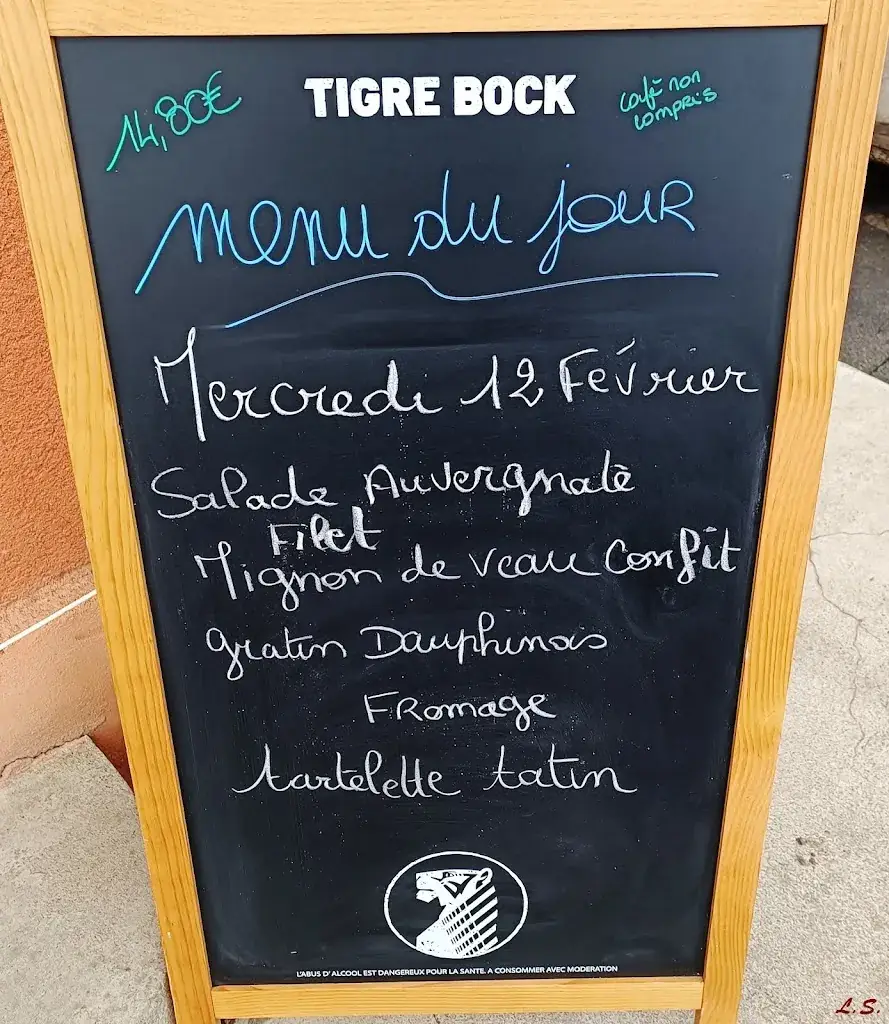 14,80€
TIGRE BOCK
café non
compris
menu du jour
Mercredi 12 Février
Salade Auvergnate
Filet
Mignon de veau confit
gratin Dauphinois
Fromage
tartelette tatin
L'ABUS D'ALCOOL EST DANGEREUX POUR LA SANTE. A CONSOMMER AVEC MODERATION
L.S.